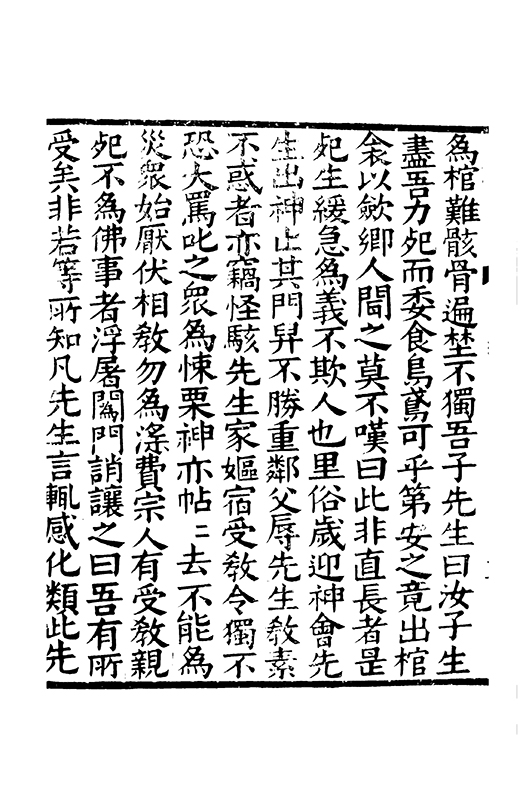 為棺難骸骨遍埜不獨吾子先生曰汝子生
盡吾力死而委食烏鳶可乎第安之竟出棺
衾以斂鄉人聞之莫不嘆曰此非直長者是
死生緩急為義不欺人也里俗歲迎神會先
生出神止其門舁不勝重鄰父辱先生教素
不惑者亦竊怪駭先生家嫗宿受教令獨不
恐大罵叱之衆為悚栗神亦帖〻去不能為
災衆始厭伏相教勿為滛費宗人有受教親
死不為佛事者浮屠闔門誚讓之曰吾有所
受矣非若等所知凡先生言輒感化類此先